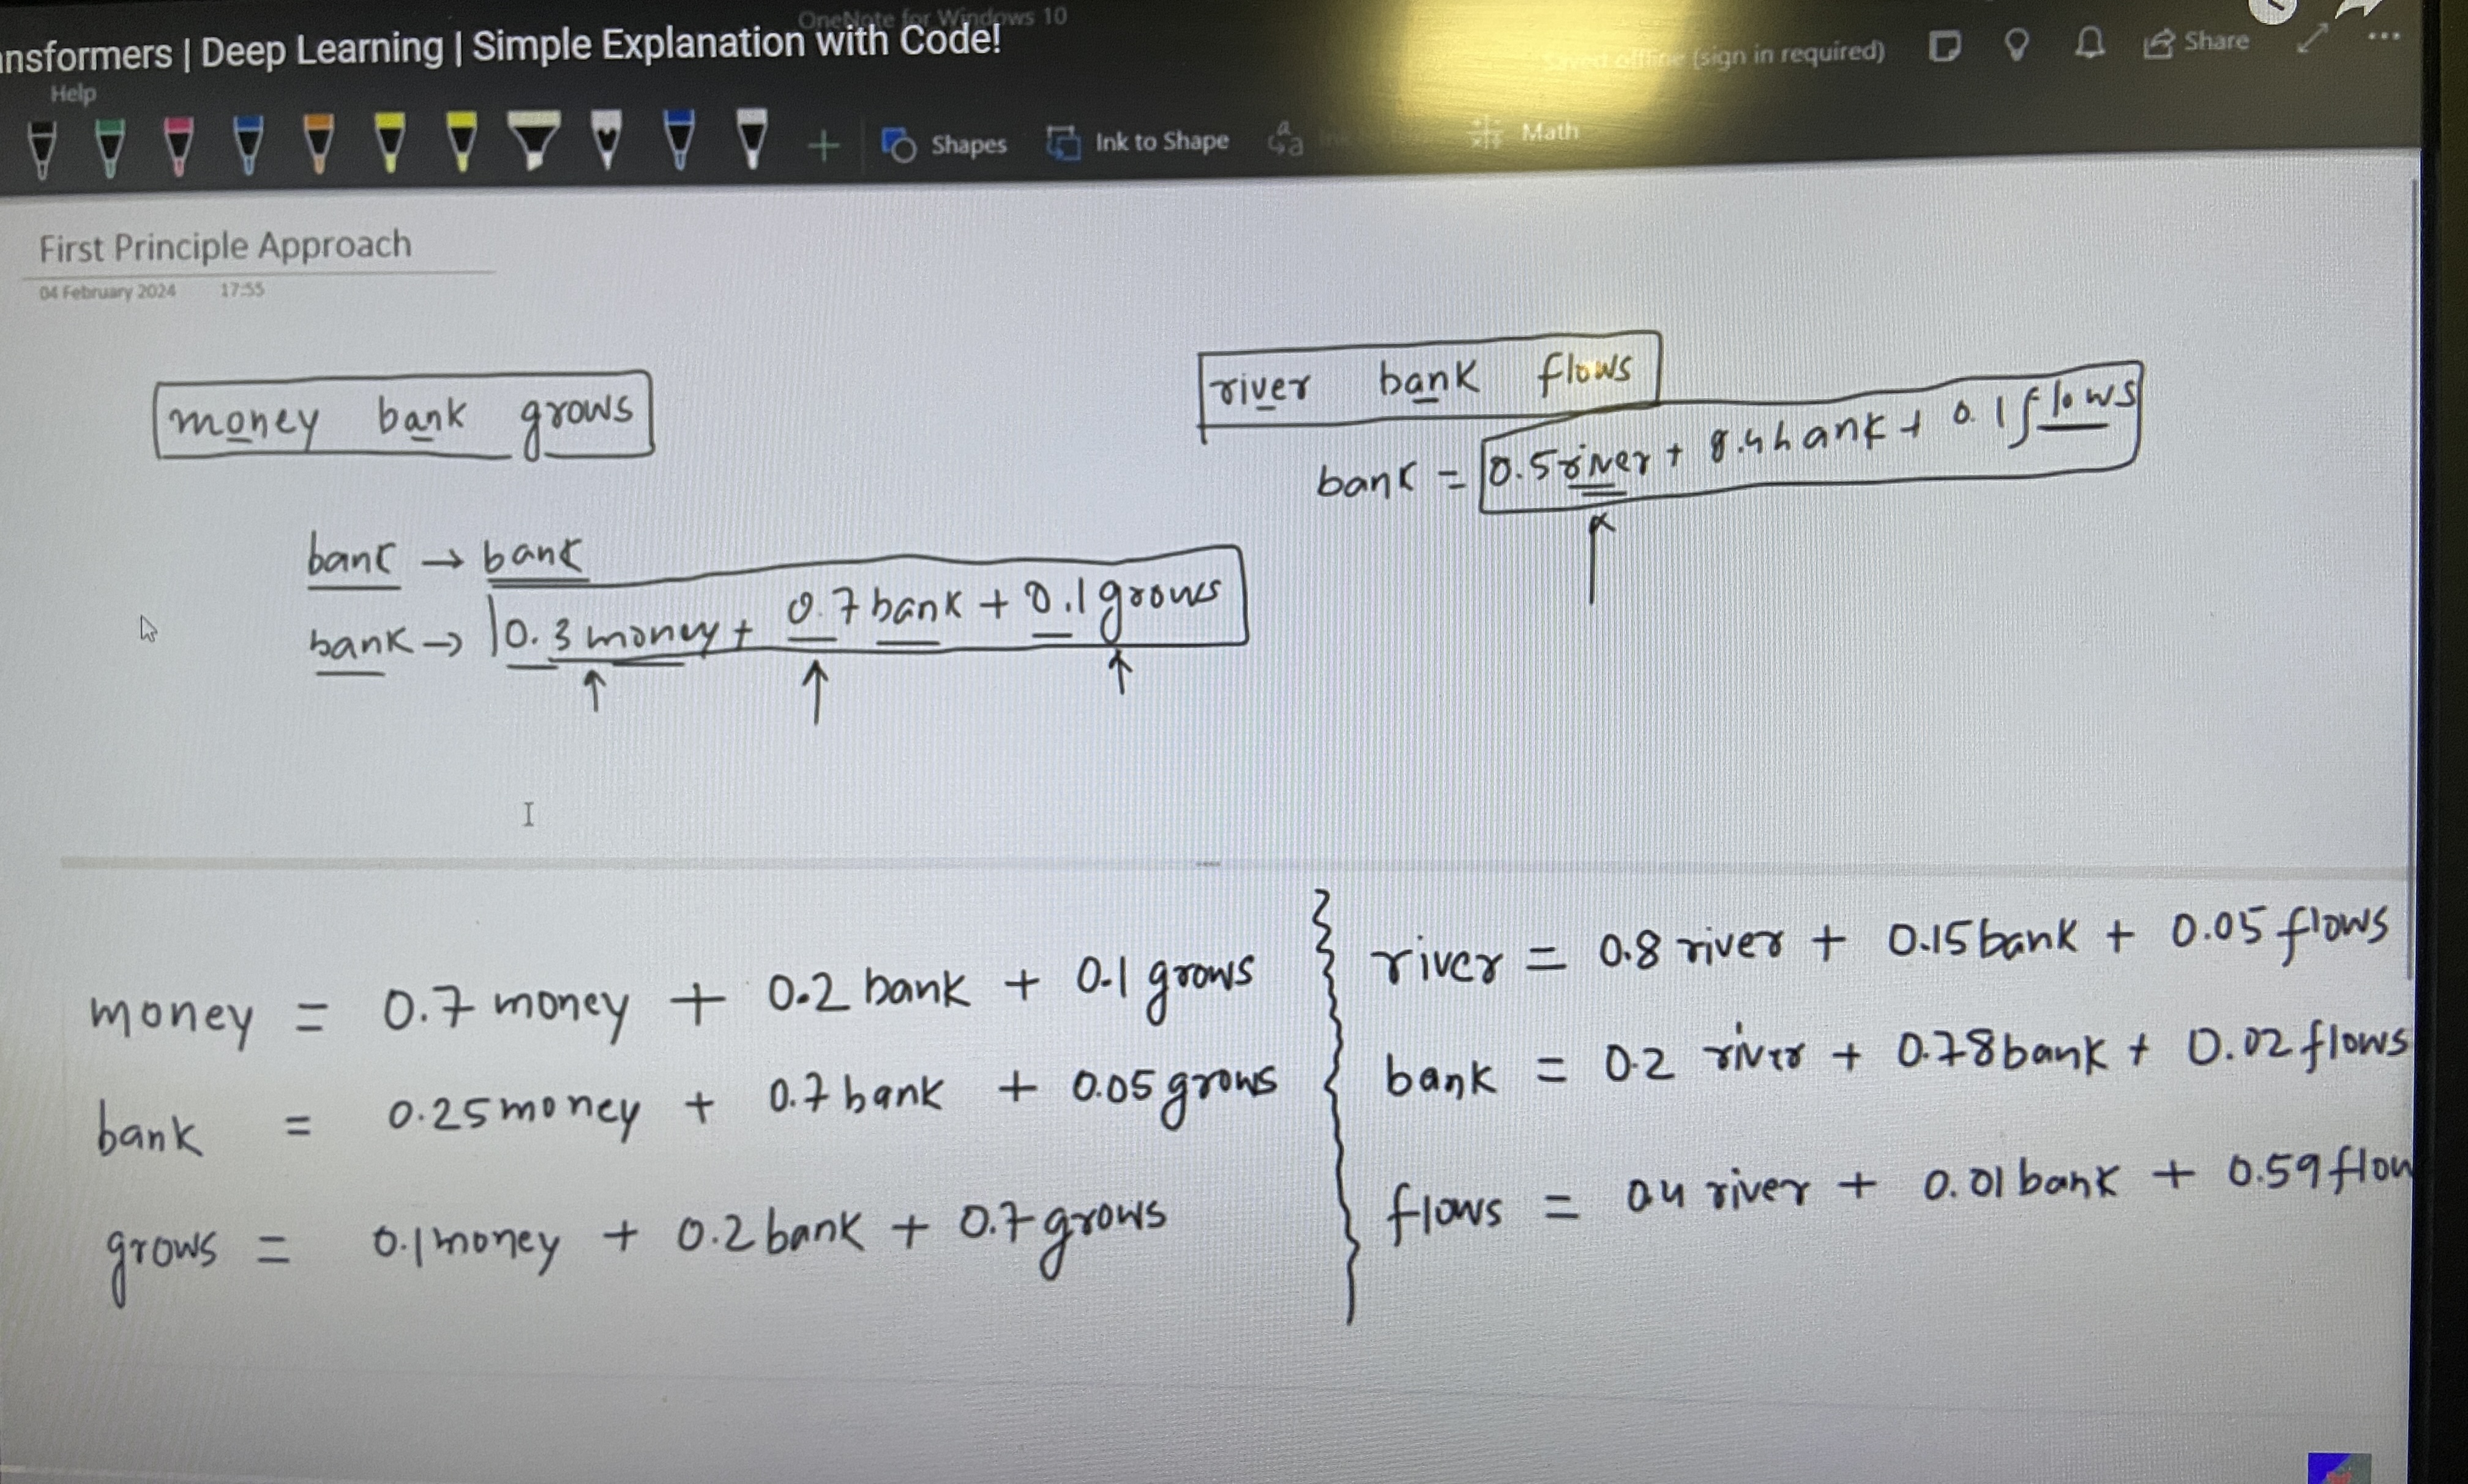 OneNote for Windows 10
ansformers | Deep Learning | Simple Explanation with Code!
(sign in required) Share
Help
Shapes Ink to Shape Math
First Principle Approach
04 February 2024 17:55
money bank grows
river bank flows
bank = 0.5 river + 0.4 bank + 0.1 flows
bank → bank
bank → 0.3 money + 0.7 bank + 0.1 grows
money = 0.7 money + 0.2 bank + 0.1 grows
bank = 0.25 money + 0.7 bank + 0.05 grows
grows = 0.1 money + 0.2 bank + 0.7 grows
river = 0.8 river + 0.15 bank + 0.05 flows
bank = 0.2 river + 0.78 bank + 0.02 flows
flows = 0.4 river + 0.01 bank + 0.59 flow